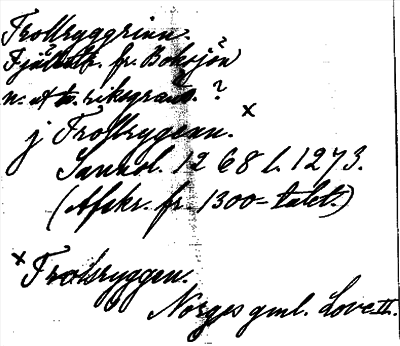 Trollryggrinn.
Fjällstr. fr. Boksjön?
n. af n. riksgräns. ?
j Trollryggen. x
Sannol. 1268 l. 1273.
(Afskr. fr. 1300-talet.)
x Trollryggen.
Norges gml. Love II.